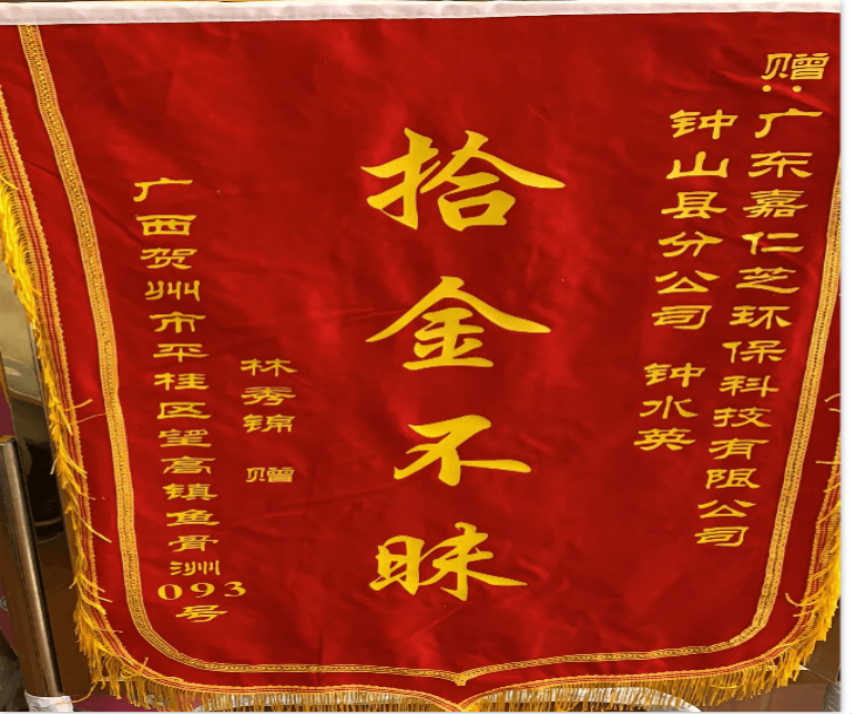 赠:广东嘉仁芝环保科技有限公司
钟山县分公司 钟水英
拾金不昧
林秀锦 赠
广西贺州市平桂区望高镇鱼骨洲
093
号